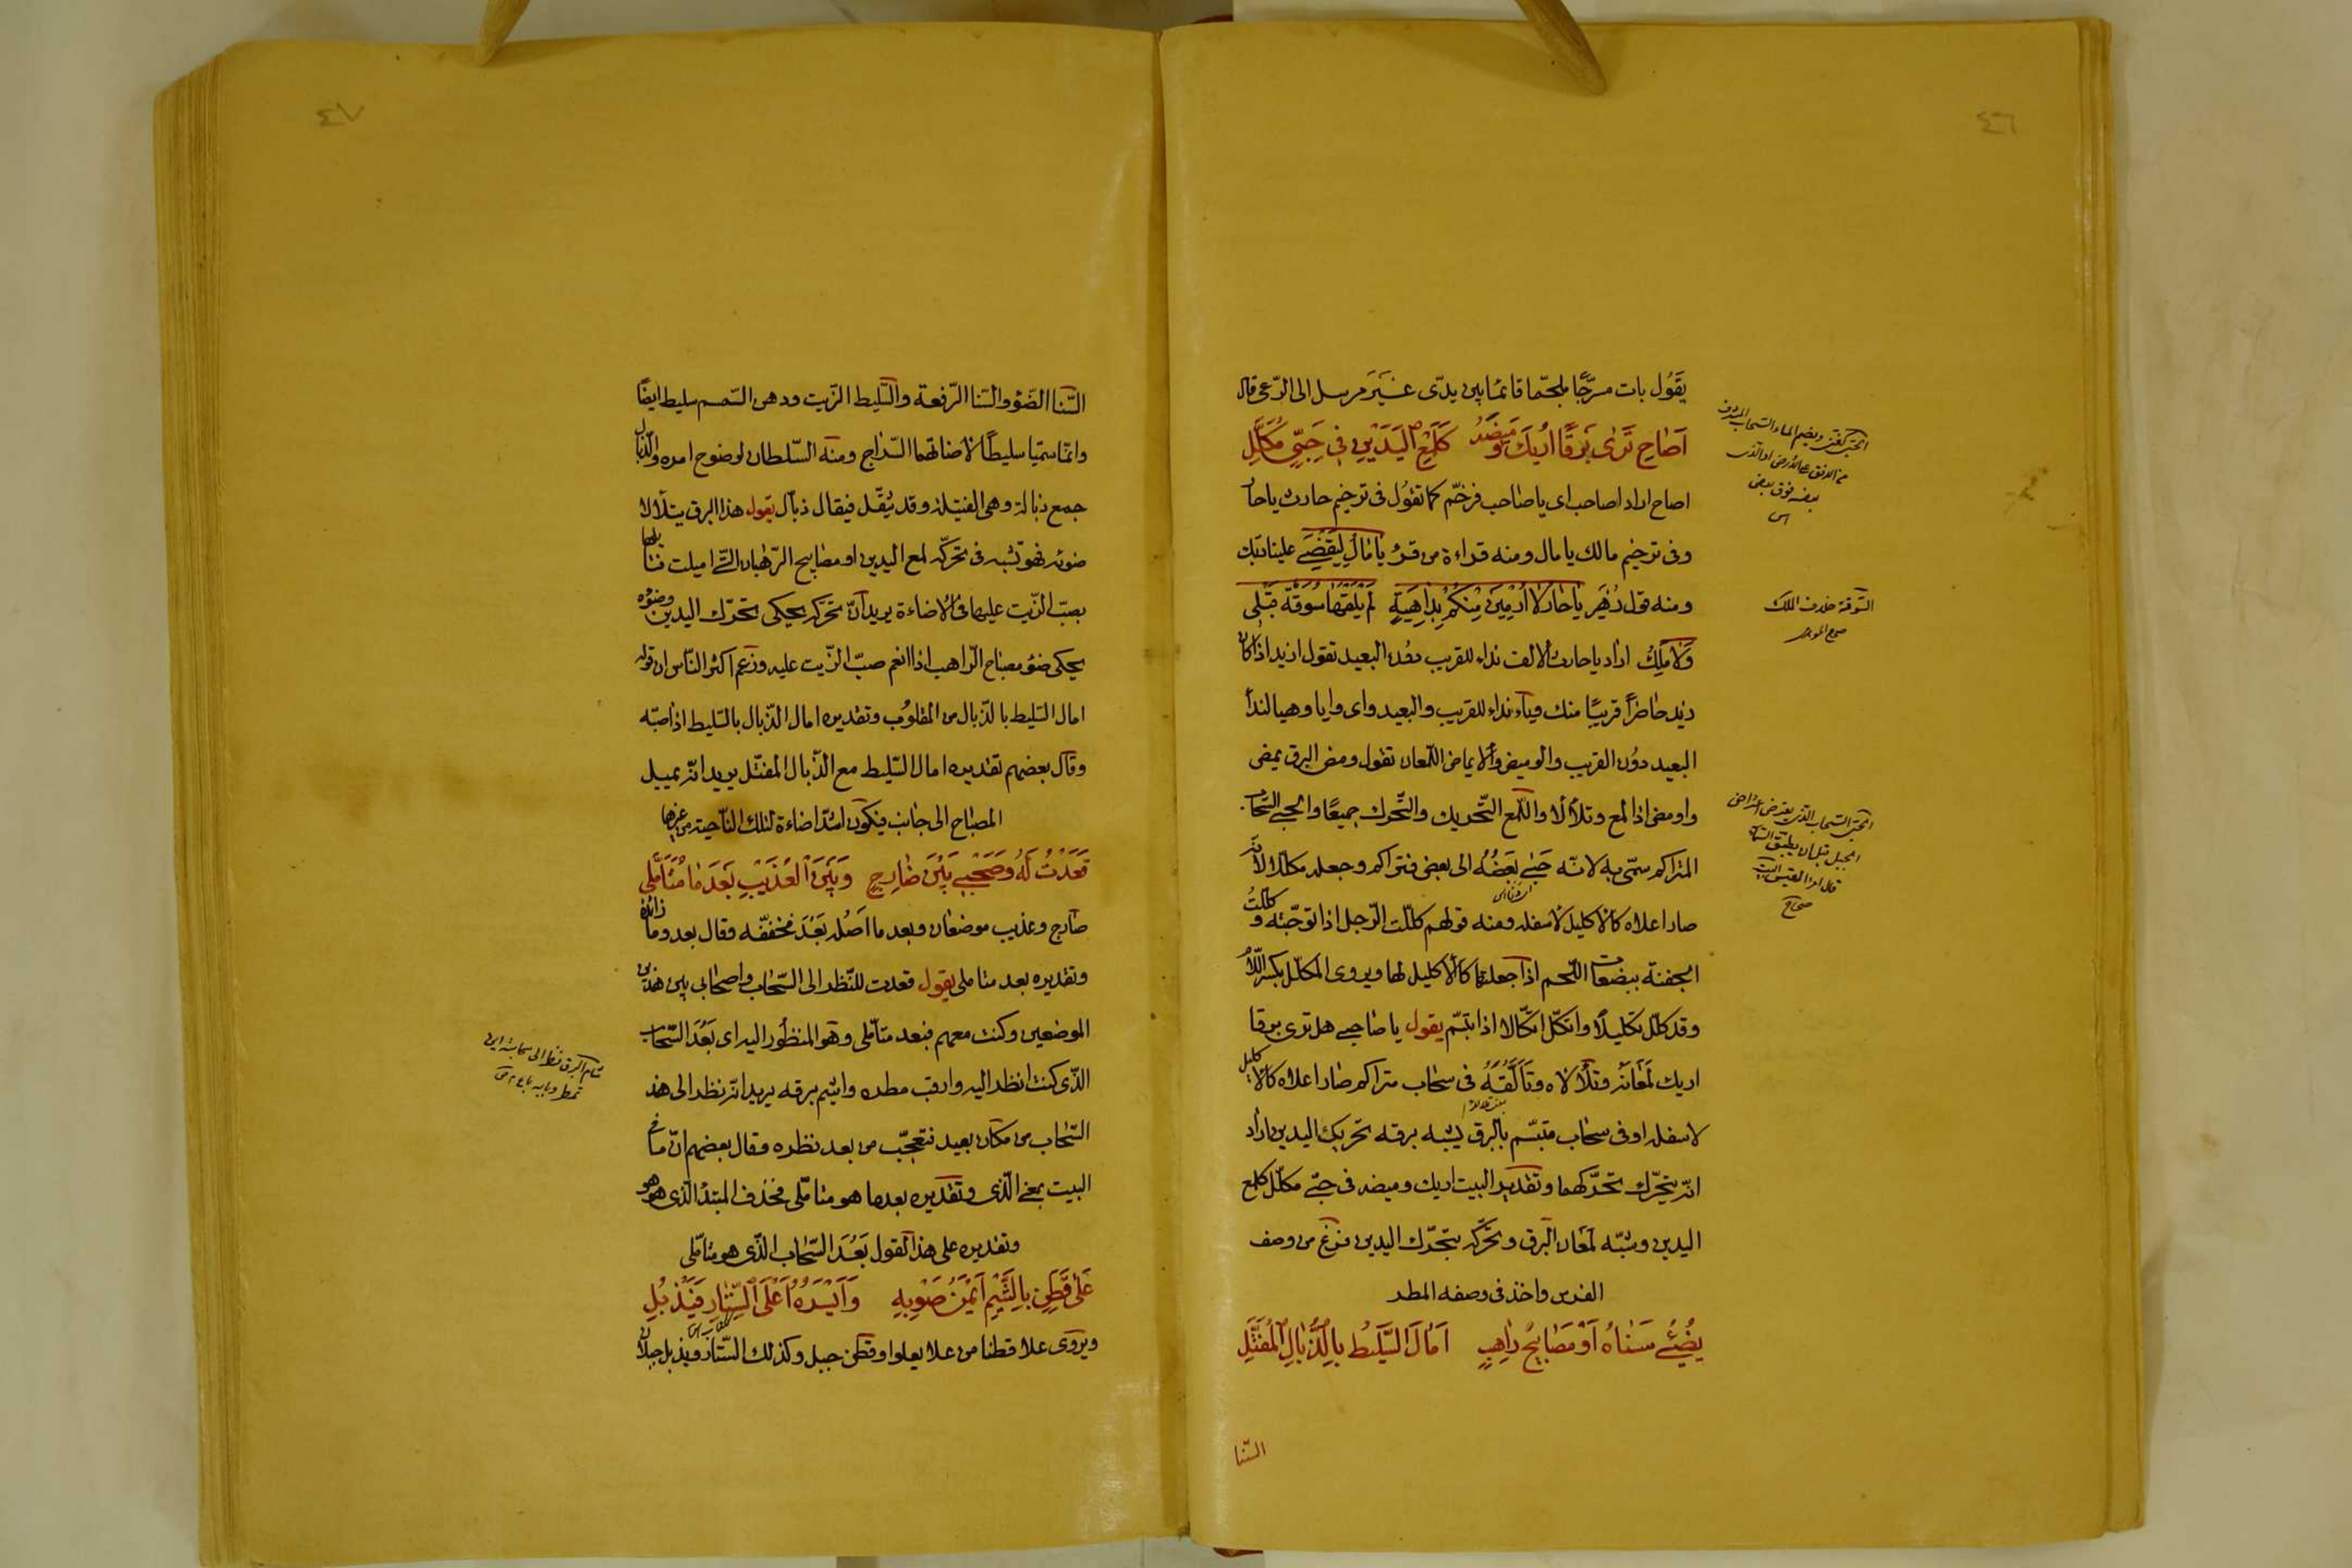 ٤٦
يَقُول بات مسرّجًا ملجّما قائمًا بين يدىّ غَيرَ مرسل الى الرّعى قال
اَصَاحِ تَرٰى بَرقًا اُريكَ وَميضَهُ كَلَمْعِ الْيَدَيْنِ فى حَبِىٍّ مُكَلَّلِ
اصاح اراد اصاحب اى يا صاحب فرخّم كما تقول فى ترخيم حارث ياحار
وفى ترخيم مالك يا مال ومنه قراءة من قرأ يا مٰالِ لِيَقْضِ علينا ربّك
ومنه قول زُهَير يٰا حٰارِ لا اُرْمَيَنَ مِنْكُمْ بِدٰاهِيَةٍ لَمْ يَلْقَهٰا سُوقَةٌ قَبْلى
وَلا مَلِكُ اراد يا حارث والالف نداء للقريب دون البعيد تقول ازيد اذا كان
زيد حاضرًا قريبًا منك وياء نداء للقريب والبعيد واى وايا وهيا لنداء
البعيد دوُن القريب والوميض والايماض اللّمعان تقول ومض البرق يمض
واومض اذا لمع وتلألأ واللّمع التّحريك والتّحرك جميعًا والحبى السّحاب
المتراكم سمّى به لانّه حَبٰى بَعضُهُ الى بعض فتراكم وجعله مكلّلا لانّه
صار اعلاه كالاكليل لاسفله ومنه قولهم كلّلت الرّجل اذا توّجته وكلّلتُ
الجفنة ببضعات اللّحم اذا جعلتها كالاكليل لها ويروى المكلّل بكسر اللّام
وقد كلّل تكليلًا وانكلّ انكلالا اذا تبسّم يقول يا صاحبى هل ترى برقا
اريك لَمعَانَهُ وتلألأه وتَألُّقَهُ فى سحاب متراكم صار اعلاه كالاكليل
لاسفله او فى سحاب متبسّم بالبرق يشبه برقه تحريك اليدين اراد
انّه يتحرّك تحرّكهما وتقدير البيت اريك وميضه فى حبىّ مكلّل كلمع
اليدين وشبّه لمعان البرق وتحرّكه بتحرّك اليدين فرغ من وصف
الفرس واخذ فى وصفه المطر
يُضِئُ سَنٰاهُ اَوْ مَصٰابيحُ رٰاهِبٍ اَمٰالَ السَّليطَ بِالذُّبٰالِ الْمُفَتَّلِ
السّنا
السّوقة خلاف الملك
الحبىّ السّحاب الذى يعترض اعتراض
الجبل قبل ان يطبّق السماء
قال امرؤ القيس البيت
صحاح
٤٧
السّنا الضّوء والسّنا الرّفعة والسّليط الزّيت ودهن السّمسم سليط ايضًا
وانّما سمّيا سليطًا لاضائتهما السّراج ومنه السّلطان لوضوح امره والذّبال
جمع ذبالة وهى الفتيلة وقد يُثقّل فيقال ذبّال يقول هذا البرق يتلألأ
ضوئه فهو تشبه فى تحرّكه لمع اليدين او مصابيح الرّهبان الّتى اميلت فتايلها
بصبّ الزّيت عليها فى الاضاءة يريد انّ تحرّكه يحكى تحرّك اليدين وضوؤه
يحكى ضوء مصباح الرّاهب اذا انعم صبّ الزّيت عليه وزعم اكثر النّاس ان قوله
امال السّليط بالذّبال من المقلوُب وتقديره امال الذّبال بالسّليط اذا صبّه
وقال بعضهم تقديره امال السّليط مع الذّبال المفتّل يريد انّه يميل
المصباح الى جانب فيكون اشدّ اضاءة لتلك النّاحية من غيرها
قَعَدْتُ لَهُ وَصُحْبَتى بَيْنَ ضٰارِجٍ وَبَيْنَ الْعُذَيْبِ بَعْدَ مٰا مُتَاَمَّلى
ضارج وعذيب موضعان وبعد ما اَصْله بَعُدَ فخفّفه وقال بعد وما زائدة
وتقديره بعد متاملى يقول قعدت للنّظر الى السّحاب واصحابى بين هذين
الموضعين وكنت معهم فبعد متأمّلى وهو المنظور اليه اى بَعُدَ السّحاب
الذّى كنت انظر اليه وارقب مطره واشيم برقه يريد انّه نظر الى هذ
السّحاب من مكان بعيد فتعجّب من بعد نظره وقال بعضهم انّ ما فى
البيت بمعنى الّذى وتقديره بعد ما هو متامّلى فحذف المبتدأ الّذى هو هو
وتقديره على هذا القول بَعُدَ السّحاب الذّى هو متامّلى
عَلٰى قَطَنٍ بِالشَّيْمِ اَيْمَنُ صَوْبِهِ وَاَيْسَرُهُ اَعْلَى السِّتٰارِ فَيَذْبُلِ
ويروى علا قطنا من علا يعلوا وقطن جبل وكذلك السّتار ويذبل جبلان